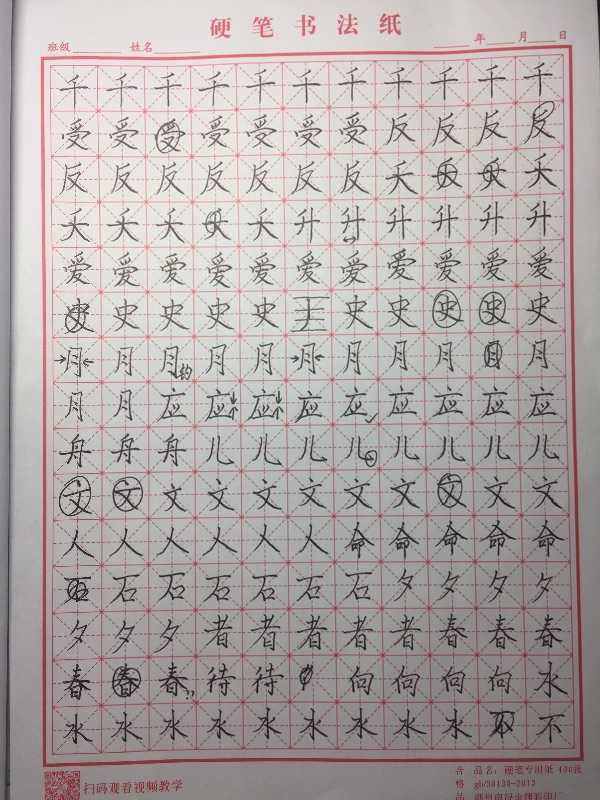 硬笔书法纸
班级 姓名 年 月 日
千千千千千千千千千千千
受受受受受受受反反反反
反反反反反反反夭夭夭夭
夭夭夭夭夭升升升升升升
爱爱爱爱爱爱爱爱爱爱爱
史史史史史王史史史史史
月月月钩月月月月月月月月
月月应应应应应应应应应
舟舟舟儿儿儿儿儿儿儿儿
文文文文文文文文文文文
人人人人人人命命命命命
石石石石石石石夕夕夕夕
夕夕夕者者者者者春春春
春春春待待向向向向水
水水水水水水水水水不不
扫码观看视频教学
品名：硬笔专用纸 400张